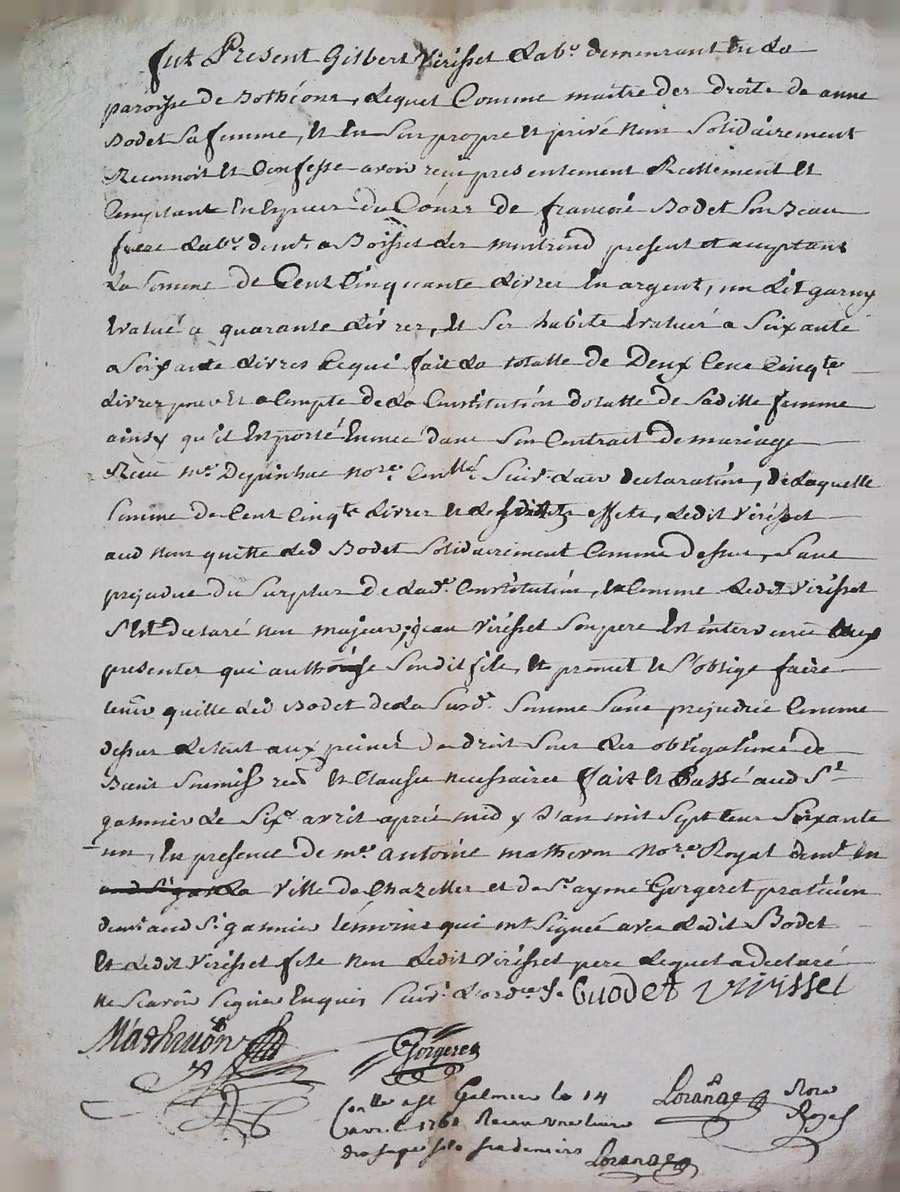 fut Present Gilbert Virisset Lab.r demeurant en La
paroisse de Bothéon, Lequel Comme maitre des droits de anne
Bodet Sa femme, et En Son propre et privé nom Solidairement
Reconnoit et Confesse avoir reçu presentement Réellement et
Comptant En Espèces du Cours de françois Bodet Son Beau
frere Lab.r dem.t a Boisset Les montrond present et acceptant
La Somme de Cent Cinquante Livres En argent, un Lit garny
Evalué a quarante Livres, et Ses habits Evalués a Soixante
a Soixante Livres Ce qui fait La totalle de Deux Cent Cinq.te
Livres pour et a Compte de La Constitution dotalle de Sa ditte femme
ainsy qu'il Est porté Enoncé dans Son Contrat de mariage
Receu m.e Depinhac no.re Suiv.t Leur declaration, de Laquelle
Somme de Cent Cinq.te Livres et desdits effets, Ledit Virisset
aud nom quitte Led Bodet Solidairement Comme dessus, Sans
prejudice du Surplus de Lad.e Constitution, et Comme Ledit Virisset
S'Est declaré non majeur, jean Virisset Son pere Est intervenu aux
presentes qui authorise Sondit fils, et promet et S'oblige faire
tenir quitte Led Bodet de La Susd.e Somme Sans prejudice Comme
dessus Le tout aux peines de droit Sous Les obligations de
Biens Soumiss ren.on et Clauses necessaires fait et Passé aud S.t
galmier Le Six.e avril après midy L'an mil Sept Cent Soixante
un, En presence de m.e Antoine matheron No.re Royal dem.t En
La Ville de Chazelles et de S.r ayme Gorgeret praticien
dem.t aud S.t galmier témoins qui ont Signé avec Ledit Bodet
Et Ledit Virisset fils non Ledit Virisset pere Lequel a declaré
ne Scavoir Signer Enquis Suiv.t L'ord.ce
Buodet Virisset
Matheron
Gorgeret
Con.llé a St Galmier le 14
avril 1761 Receu une livre
Lorange
Nore
Royal
Lorange